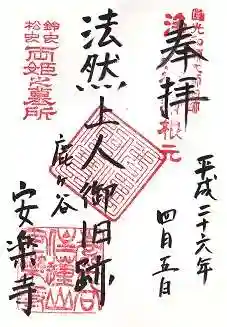 奉拝
平成二十六年
四月五日
法然上人御旧跡
鹿ヶ谷
安楽寺
鈴虫
松虫
両姫之墓所
根元